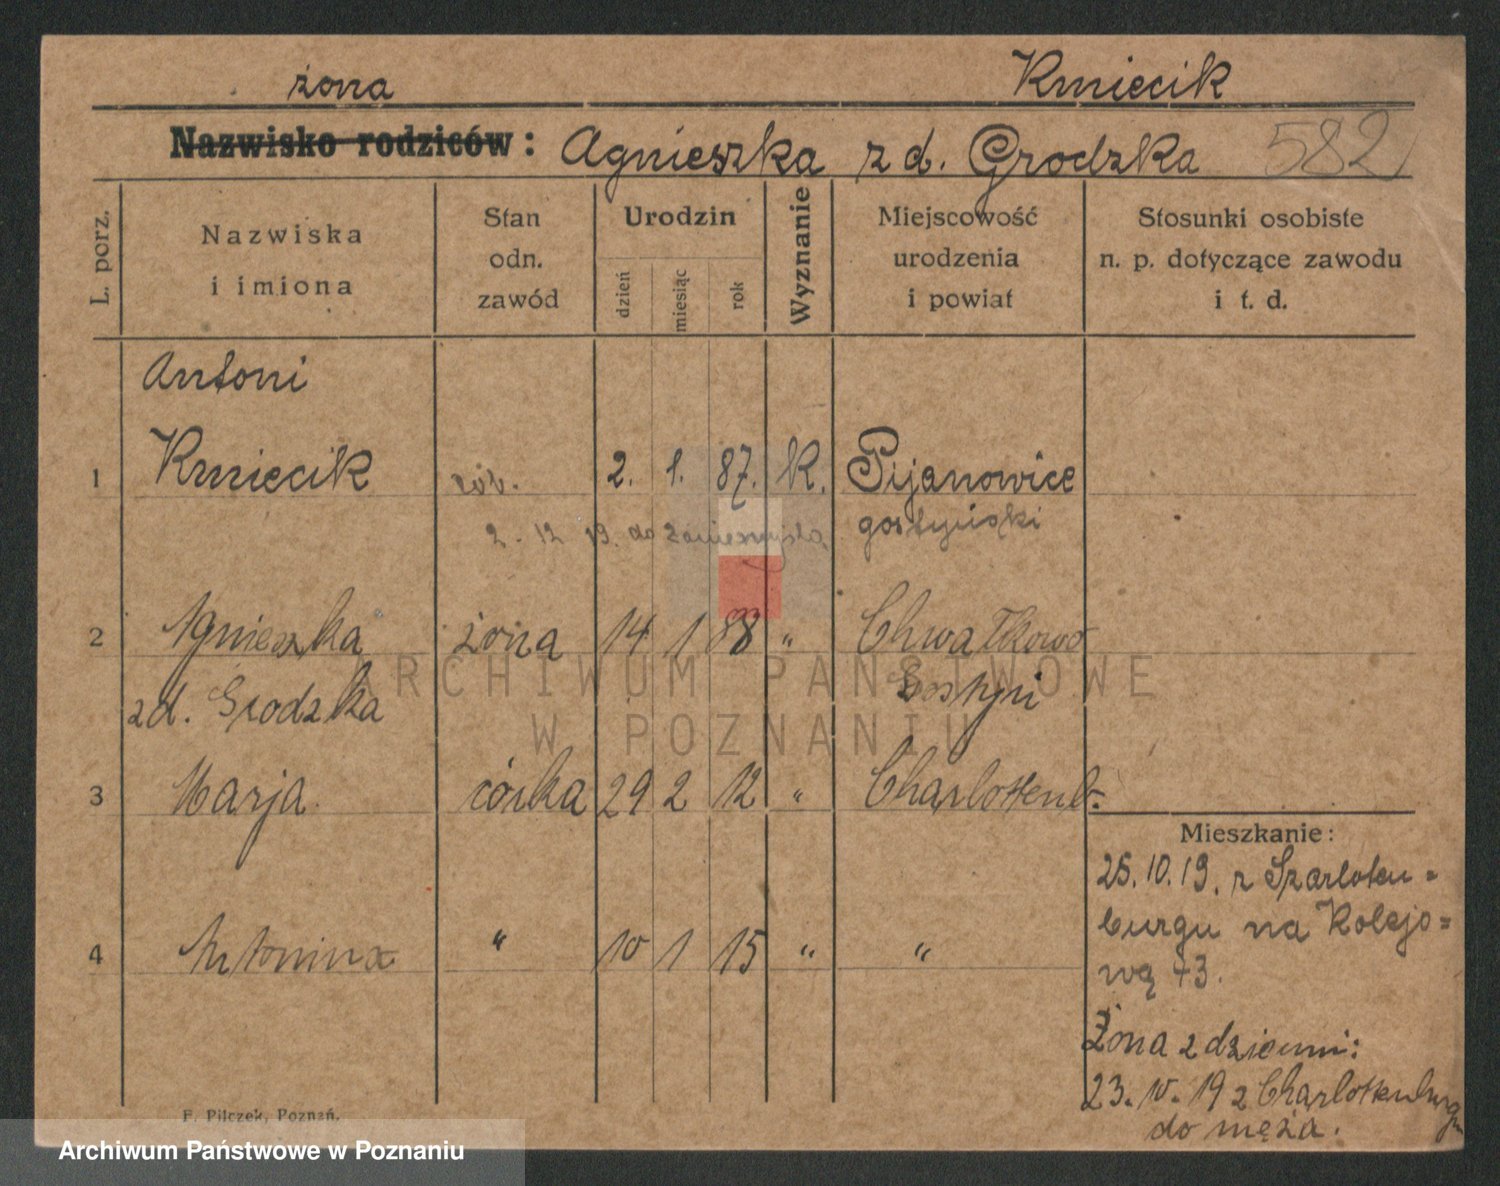 żona Kmiecik
Nazwisko rodziców: Agnieszka z d. Grodzka 582
L. porz.
Nazwiska
i imiona
Stan
odn.
zawód
Urodzin
dzień
miesiąc
rok
Wyznanie
Miejscowość
urodzenia
i powiat
Stosunki osobiste
n. p. dotyczące zawodu
i t. d.
Antoni
1 Kmiecik rob. 2. 1. 87. K. Pijanowice
2 - 12 19. do Zaniemyśla gostyński
2 Agnieszka żona 14 1 88 " Chwałkowo
zd. Grodzka Gostyń
3 Marja córka 29 2 12 " Charlottenb.
4 Antonina " 10 1 15 " "
Mieszkanie:
25.10.19. z Szarloten=
burgu na Kolejo=
wą 43.
Żona z dziećmi:
23.10.19 z Charlottenburga
do męża.
F. Pilczek, Poznań.
ARCHIWUM PAŃSTWOWE
W POZNANIU
Archiwum Państwowe w Poznaniu